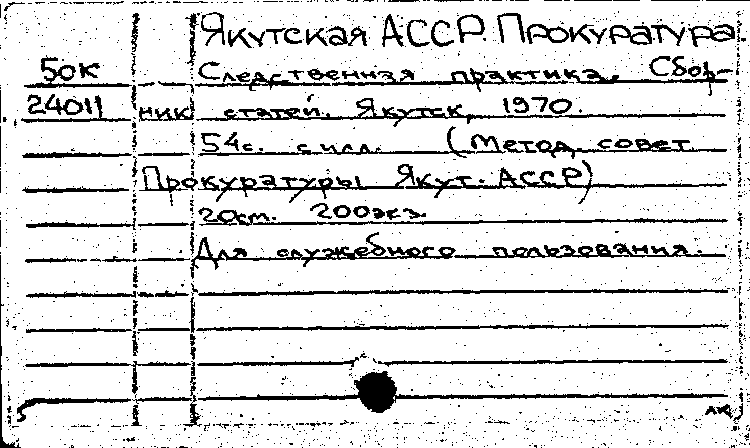 Якутская АССР. Прокуратура.
50к Следственная практика. Сбор-
24011 ник статей. Якутск, 1970.
54с. с илл. (Метод. совет
Прокуратуры Якут. АССР)
20см. 200экз.
Для служебного пользования.